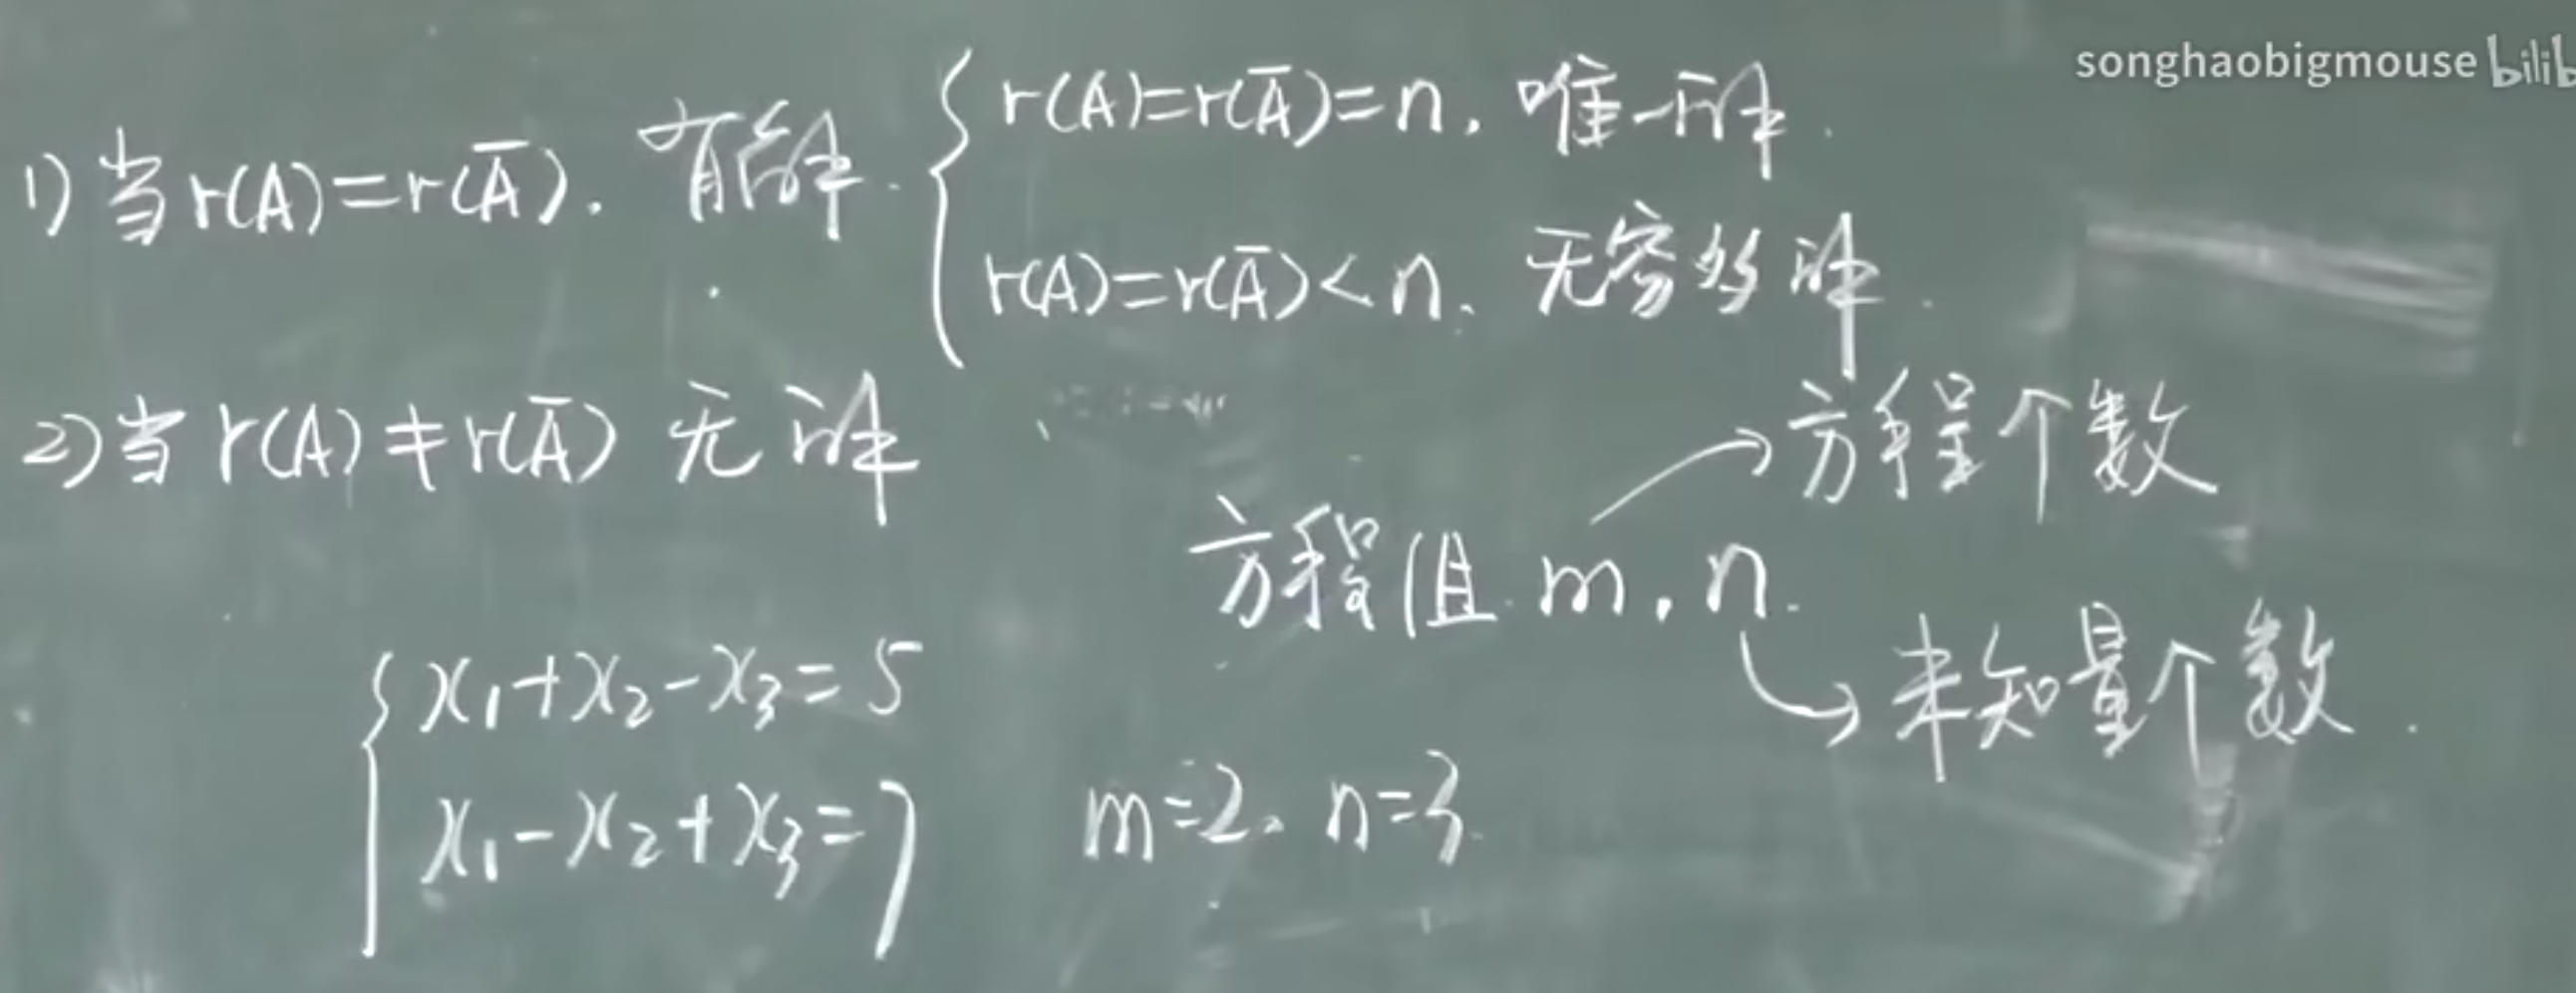 songhaobigmouse bilib
1) 当 r(A)=r(A̅). 有解. { r(A)=r(A̅)=n. 唯一解.
r(A)=r(A̅)<n. 无穷多解.
2) 当 r(A)≠r(A̅) 无解
方程组 m, n.
→方程个数
→未知量个数.
{ x₁+x₂-x₃=5
x₁-x₂+x₃=7
m=2, n=3.